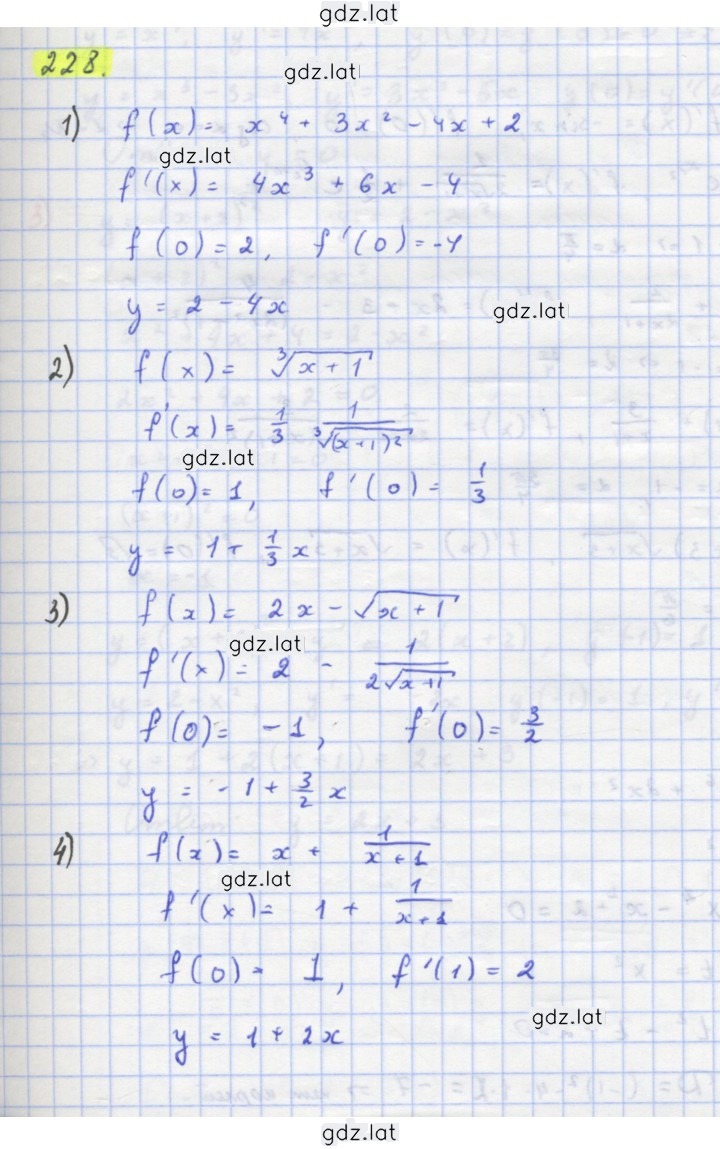 gdz.lat
228.
gdz.lat
1) f(x) = x⁴ + 3x² - 4x + 2
gdz.lat
f'(x) = 4x³ + 6x - 4
f(0) = 2, f'(0) = -4
y = 2 - 4x
gdz.lat
2) f(x) = ∛(x + 1)
f'(x) = 1/3 1/∛(x+1)²
gdz.lat
f(0) = 1, f'(0) = 1/3
y = 1 + 1/3 x
3) f(x) = 2x - √(x + 1)
gdz.lat
f'(x) = 2 - 1/(2√(x+1))
f(0) = -1, f'(0) = 3/2
y = -1 + 3/2 x
4) f(x) = x + 1/(x + 1)
gdz.lat
f'(x) = 1 + 1/(x+1)
f(0) = 1, f'(1) = 2
gdz.lat
y = 1 + 2x
gdz.lat